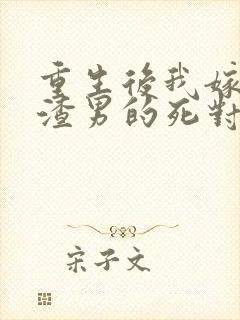 重生後我嫁
渣男的死對
宋子文